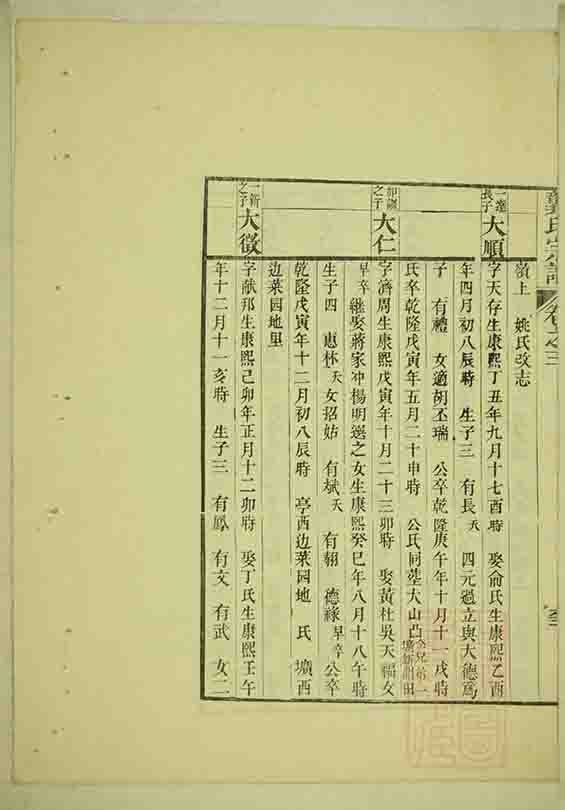 氏宗譜 卷之三
嶺上 姚氏改志
一達長子 大順 字天存生康熙丁丑年九月十七酉時 娶俞氏生康熙乙酉
年四月初八辰時 生子三 有長夭 四元過立與大德爲
子 有禮 女適胡丕瑞 公卒乾隆庚午年十月十一戌時
氏卒乾隆戊寅年五月二十申時 公氏同塟大山凸
之子 大仁 字濟周生康熙戊寅年十月二十三卯時 娶黃杜吳天福女
早卒 繼娶蔣家冲楊明選之女生康熙癸巳年八月十八午時
生子四 惠林夭 女招姑 有斌夭 有翱 德緣早卒 公卒
乾隆戊寅年十二月初八辰時 亭西边菜园地 氏 壙西
边菜园地里
一新之子 大徵 字献邦生康熙己卯年正月十二卯時 娶丁氏生康熙壬午
年十二月十一亥時 生子三 有鳳 有文 有武 女二